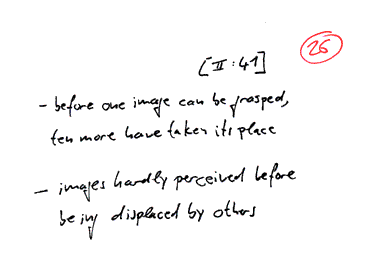 26
[II:41]
- before one image can be grasped,
ten more have taken its place
- images hardly perceived before
being displaced by others